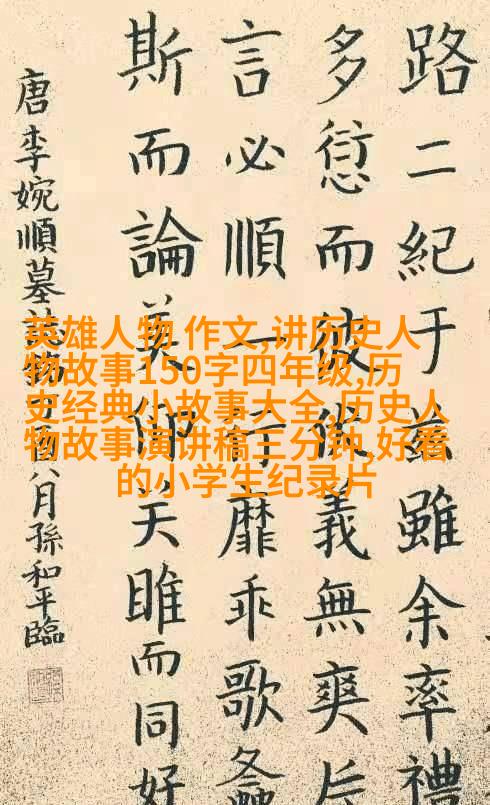 路二紀于茲雖余率禮
多愆而彼義無爽片
言必順一行靡乖歌
斯而論美笑睢而同好
唐李婉順墓誌銘丁酉八月孫和平臨
英雄人物 作文,讲历史人
物故事150字四年级,历
史经典小故事大全,历史人
物故事演讲稿三分钟,好看
的小学生纪录片